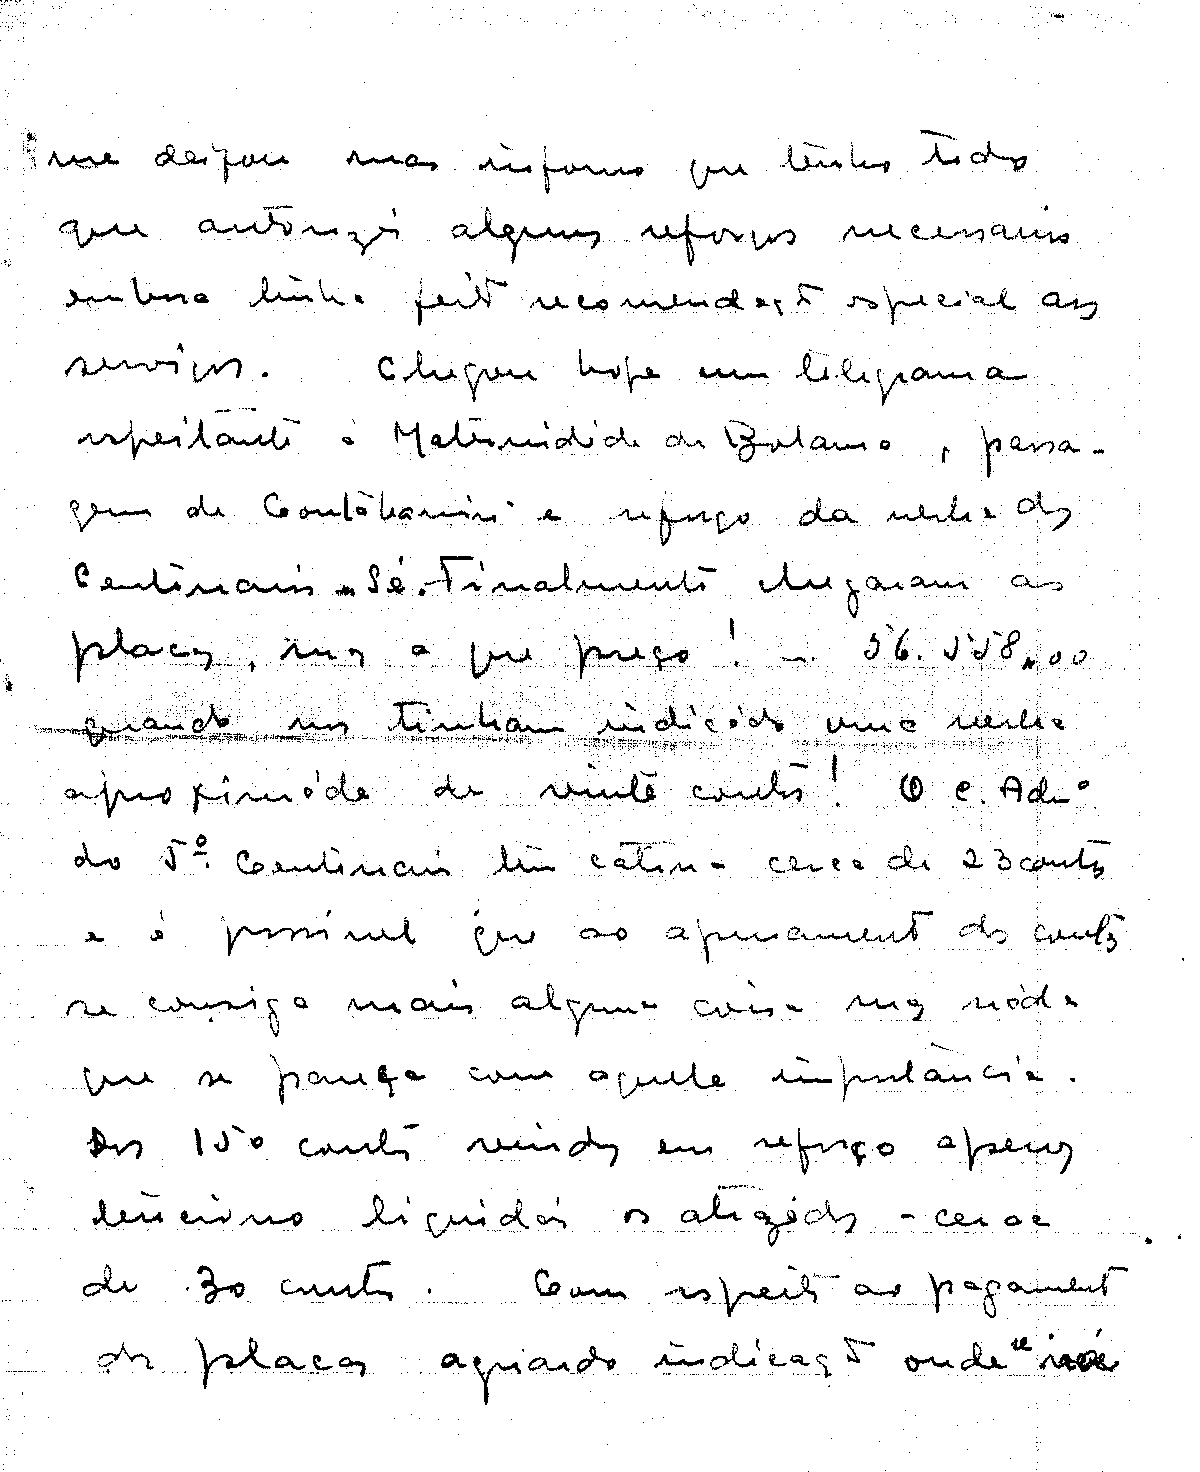 me deixou mas informo que tenho tido
que autorizar alguns reforços necessarios
embora tenha feito recomendação especial aos
serviços. Chegou hoje um telegrama
respeitante á Maternidade de Bolama, passa-
gem de Contubanim e reforço da verba dos
Centenario da Sé. Finalmente chegaram as
placas, mas a que preço! ... 56.558,00
quando nos tinham indicado uma verba
aproximada de vinte contos! O C. Admo
do 5º. Centenario tem cerca de 23 contos
e é possivel que ao apuramento de contos
se consiga mais alguma coisa mas nada
que se pareça com aquela importância.
Dos 150 contos vindos em reforço apenas
tenciono liquidar os atrazados - cerca
de 30 contos. Com respeito ao pagamento
das placas aguardo indicação onde se irá